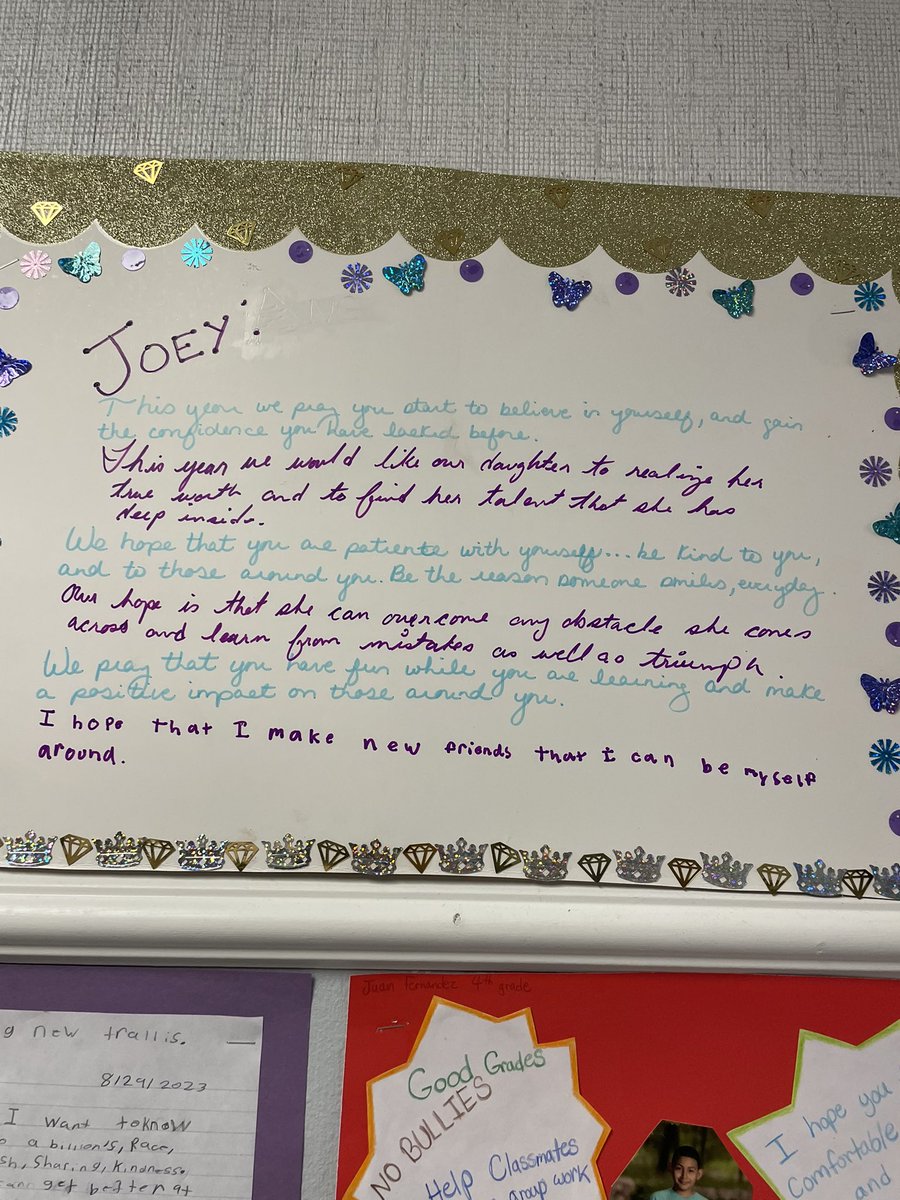 JOEY:
This year we pray you start to believe in yourself, and gain
the confidence you have lacked before.
This year we would like our daughter to realize her
true worth and to find her talent that she has
deep inside.
We hope that you are patiente with yourself... be kind to you,
and to those around you. Be the reason someone smiles, everyday.
Our hope is that she can overcome any obstacle she comes
across and learn from mistakes as well as triumph.
We pray that you have fun while you are learning and make
a positive impact on those around you.
I hope that I make new friends that I can be myself
around.
g new trallis.
8/29/2023
I want toknow
a billion's, Race,
sh, Sharing, Kindness.
can get better at
Juan Fernandez 4th grade
Good Grades
NO BULLIES
Help Classmates
group work
I hope you
Comfortable
and